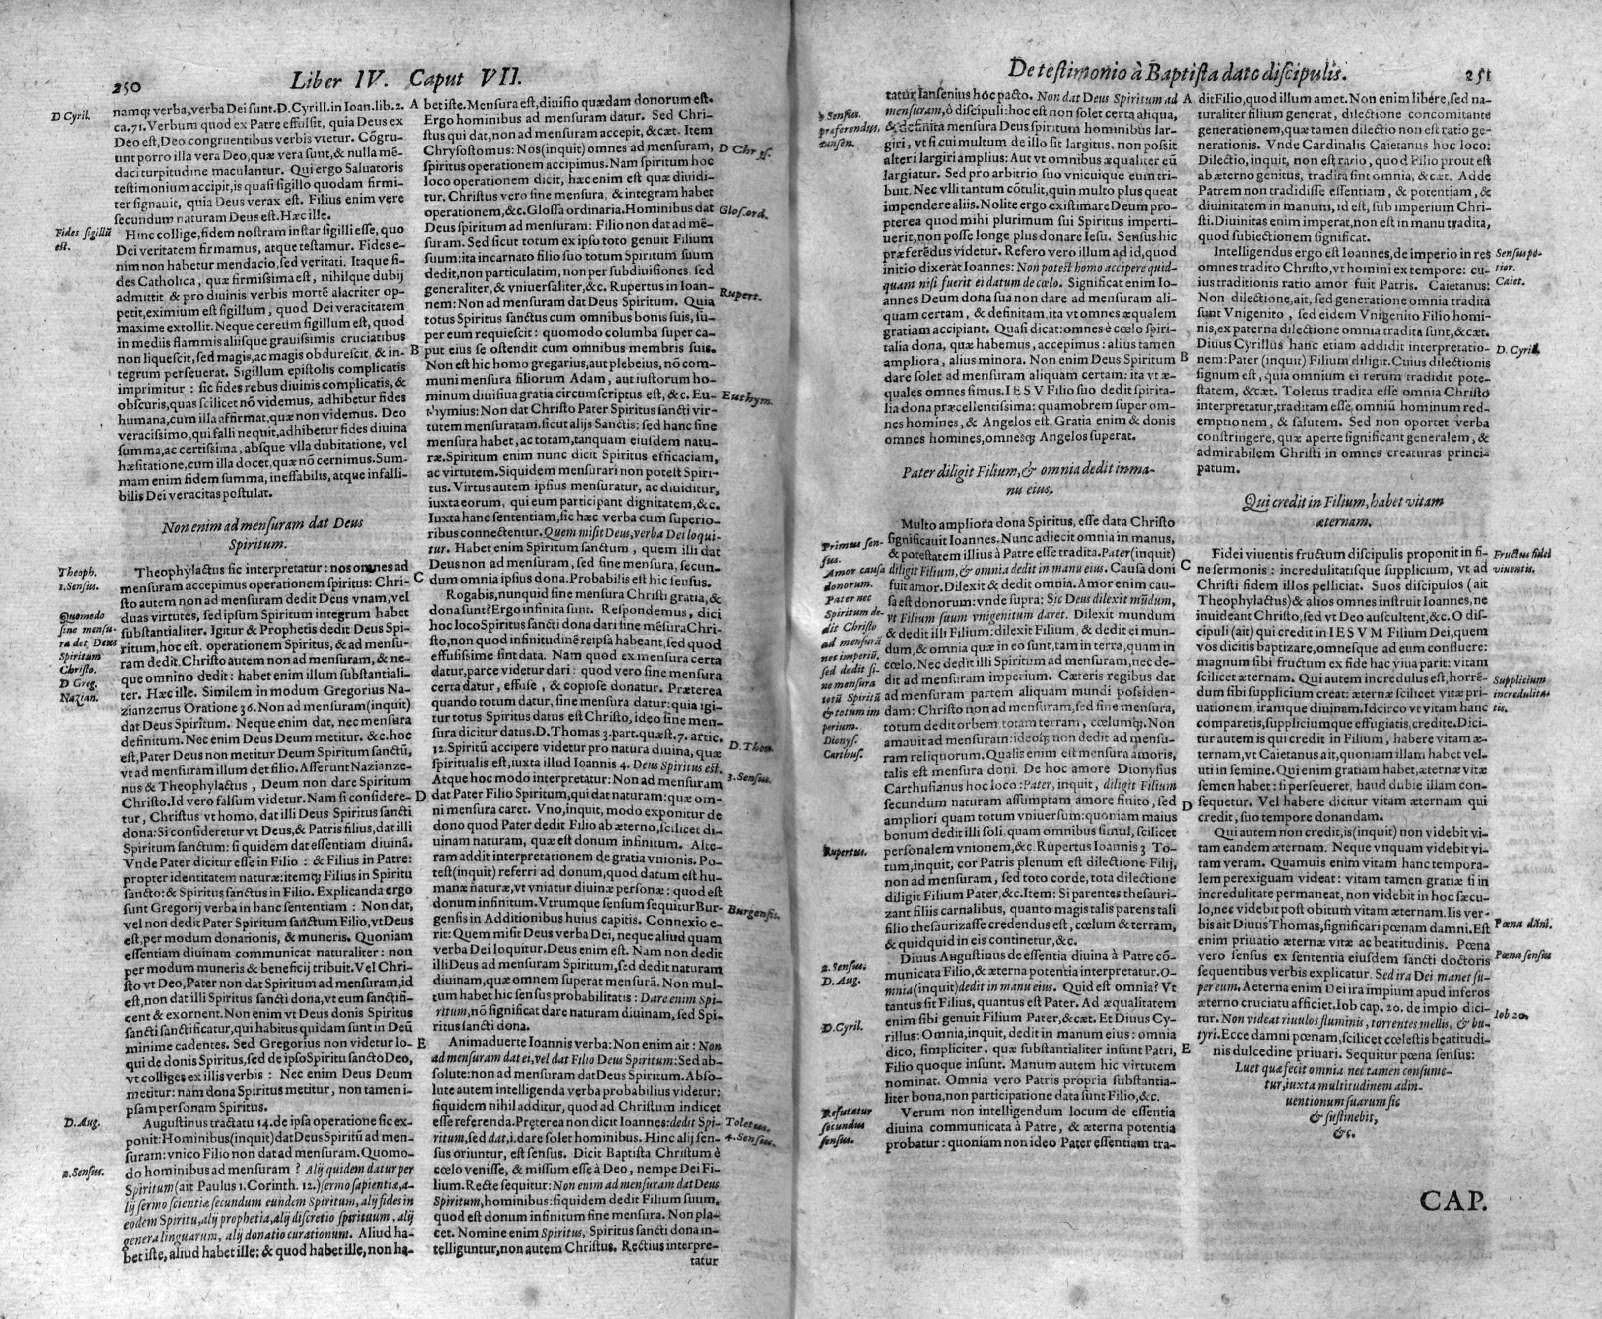 250
Liber IV. Caput VII.
D Cyril.
namq; verba, verba Dei sunt. D. Cyrill. in Ioan. lib. 2.
ca. 71. Verbum quod ex Patre effulsit, quia Deus ex
Deo est, Deo congruentibus verbis vtetur. Cõgru-
unt porro illa vera Deo, quæ vera sunt, & nulla mē-
daci turpitudine maculantur. Qui ergo Saluatoris
testimonium accipit, is quasi sigillo quodam firmi-
ter signauit, quia Deus verax est. Filius enim vere
secundum naturam Deus est. Hæc ille.
Fides sigillũ
est.
Hinc collige, fidem nostram instar sigilli esse, quo
Dei veritatem firmamus, atque testamur. Fides e-
nim non habetur mendacio, sed veritati. Itaque fi-
des Catholica, quæ firmissima est, nihilque dubij
admittit & pro diuinis verbis mortē alacriter op-
petit, eximium est sigillum, quod Dei veracitatem
maxime extollit. Neque cereum sigillum est, quod
in medijs flammis alijsque grauissimis cruciatibus
non liquescit, sed magis, ac magis obdurescit, & in-
tegrum perseuerat. Sigillum epistolis complicatis
imprimitur : sic fides rebus diuinis complicatis, &
obscuris, quas scilicet nō videmus, adhibetur fides
humana, cum illa affirmat, quæ non videmus. Deo
veracissimo, qui falli nequit, adhibetur fides diuina
summa, ac certissima, absque vlla dubitatione, vel
hæsitatione, cum illa docet, quæ nō cernimus. Sum-
mam enim fidem summa, ineffabilis, atque infalli-
bilis Dei veracitas postulat.
Non enim ad mensuram dat Deus
Spiritum.
Theoph.
1. Sensus.
Quomodo
sine mensu-
ra det Deus
Spiritum
Christo.
D Greg.
Nazian.
Theophylactus sic interpretatur: nos omnes ad
mensuram accepimus operationem spiritus: Chri-
sto autem non ad mensuram dedit Deus vnam, vel
duas virtutes, sed ipsum Spiritum integrum habet
substantialiter. Igitur & Prophetis dedit Deus Spi-
ritum, hoc est. operationem Spiritus, & ad mensu-
ram dedit. Christo autem non ad mensuram, & ne-
que omnino dedit : habet enim illum substantiali-
ter. Hæc ille. Similem in modum Gregorius Na-
zianzenus Oratione 36. Non ad mensuram (inquit)
dat Deus Spiritum. Neque enim dat, nec mensura
definitum. Nec enim Deus Deum metitur. &c. hoc
est, Pater Deus non metitur Deum Spiritum sanctũ,
vt ad mensuram illum det filio. Asserunt Nazianze-
nus & Theophylactus, Deum non dare Spiritum
Christo. Id vero falsum videtur. Nam si considere-
tur, Christus vt homo, dat illi Deus Spiritus sancti
dona: Si consideretur vt Deus, & Patris filius, dat illi
Spiritum sanctum: siquidem dat essentiam diuinā.
Vnde Pater dicitur esse in Filio : & Filius in Patre:
propter identitatem naturæ: itemq; Filius in Spiritu
sancto: & Spiritus sanctus in Filio. Explicanda ergo
sunt Gregorij verba in hanc sententiam : Non dat,
vel non dedit Pater Spiritum sanctum Filio, vt Deus
est, per modum donationis, & muneris. Quoniam
essentiam diuinam communicat naturaliter: non
per modum muneris & beneficij tribuit. Vel Chri-
sto vt Deo, Pater non dat Spiritum ad mensuram, id
est, non dat illi Spiritus sancti dona, vt eum sanctifi-
cent & exornent. Non enim vt Deus donis Spiritus
sancti sanctificatur, qui habitus quidam sunt in Deũ
minime cadentes. Sed Gregorius non videtur lo-
qui de donis Spiritus, sed de ipso Spiritu sancto Deo,
vt colliges ex illis verbis : Nec enim Deus Deum
metitur: nam dona Spiritus metitur, non tamen i-
psam personam Spiritus.
D. Aug.
2. Sensus.
Augustinus tractatu 14. de ipsa operatione sic ex-
ponit: Hominibus (inquit) dat Deus Spiritũ ad men-
suram: vnico Filio non dat ad mensuram. Quomo-
do hominibus ad mensuram ? Alij quidem datur per
Spiritum (ait Paulus 1. Corinth. 12.) sermo sapientiæ, a-
lij sermo scientiæ secundum eundem Spiritum, alij fides in
eodem Spiritu, alij prophetia, alij discretio spirituum, alij
genera linguarum, alij donatio curationum. Aliud ha-
bet iste, aliud habet ille; & quod habet ille, non ha-
A
B
C
D
E
bet iste. Mensura est, diuisio quædam donorum est.
Ergo hominibus ad mensuram datur. Sed Chri-
stus qui dat, non ad mensuram accepit, &cæt. Item
Chrysostomus: Nos (inquit) omnes ad mensuram,
spiritus operationem accipimus. Nam spiritum hoc
loco operationem dicit, hæc enim est quæ diuidi-
tur. Christus vero sine mensura, & integram habet
operationem, &c. Glossa ordinaria. Hominibus dat
Deus spiritum ad mensuram: Filio non dat ad mē-
suram. Sed sicut totum ex ipso toto genuit Filium
suum: ita incarnato filio suo totum Spiritum suum
dedit, non particulatim, non per subdiuisiones. sed
generaliter, & vniuersaliter, &c. Rupertus in Ioan-
nem: Non ad mensuram dat Deus Spiritum. Quia
totus Spiritus sanctus cum omnibus bonis suis, su-
per eum requiescit : quomodo columba super ca-
put eius se ostendit cum omnibus membris suis.
Non est hic homo gregarius, aut plebeius, nō com-
muni mensura filiorum Adam, aut iustorum ho-
minum diuisiua gratia circumscriptus est, &c. Eu-
thymius: Non dat Christo Pater Spiritus sancti vir-
tutem mensuratam. sicut alijs Sanctis: sed hanc sine
mensura habet, ac totam, tanquam eiusdem natu-
ræ. Spiritum enim nunc dicit Spiritus efficaciam,
ac virtutem. Siquidem mensurari non potest Spiri-
tus. Virtus autem ipsius mensuratur, ac diuiditur,
iuxta eorum, qui eum participant dignitatem, &c.
Iuxta hanc sententiam, sic hæc verba cum superio-
ribus connectentur. Quem misit Deus, verba Dei loqui-
tur. Habet enim Spiritum sanctum, quem illi dat
Deus non ad mensuram, sed sine mensura, secun-
dum omnia ipsius dona. Probabilis est hic sensus.
Rogabis, nunquid sine mensura Christi gratia, &
dona sunt? Ergo infinita sunt. Respondemus, dici
hoc loco Spiritus sancti dona dari sine mēsura Chri-
sto, non quod infinitudinē reipsa habeant, sed quod
effusissime sint data. Nam quod ex mensura certa
datur, parce videtur dari : quod vero sine mensura
certa datur, effuse, & copiose donatur. Præterea
quando totum datur, sine mensura datur: quia igi-
tur totus Spiritus datus est Christo, ideo sine men-
sura dicitur datus. D. Thomas 3. part. quæst. 7. artic.
12. Spiritũ accipere videtur pro natura diuina, quæ
spiritualis est, iuxta illud Ioannis 4. Deus Spiritus est.
Atque hoc modo interpretatur: Non ad mensuram
dat Pater Filio Spiritum, qui dat naturam: quæ om-
ni mensura caret. Vno, inquit, modo exponitur de
dono quod Pater dedit Filio ab æterno, scilicet di-
uinam naturam, quæ est donum infinitum. Alte-
ram addit interpretationem de gratia vnionis. Po-
test (inquit) referri ad donum, quod datum est hu-
manæ naturæ, vt vniatur diuinæ personæ: quod est
donum infinitum. Vtrumque sensum sequitur Bur-
gensis in Additionibus huius capitis. Connexio e-
rit: Quem misit Deus verba Dei, neque aliud quam
verba Dei loquitur. Deus enim est. Nam non dedit
illi Deus ad mensuram Spiritum, sed dedit naturam
diuinam, quæ omnem superat mensurā. Non mul-
tum habet hic sensus probabilitatis : Dare enim Spi-
ritum, nō significat dare naturam diuinam, sed Spi-
ritus sancti dona.
Animaduerte Ioannis verba: Non enim ait : Non
ad mensuram dat ei, vel dat Filio Deus Spiritum: Sed ab-
solute: non ad mensuram dat Deus Spiritum. Abso-
lute autem intelligenda verba probabilius videtur:
siquidem nihil additur, quod ad Christum indicet
esse referenda. Pręterea non dicit Ioannes: dedit Spi-
ritum, sed dat, i. dare solet hominibus. Hinc alij sen-
sus oriuntur, est sensus. Dicit Baptista Christum è
cœlo venisse, & missum esse à Deo, nempe Dei Fi-
lium. Recte sequitur: Non enim ad mensuram dat Deus
Spiritum, hominibus: siquidem dedit Filium suum,
quod est donum infinitum sine mensura. Non pla-
cet. Nomine enim Spiritus, Spiritus sancti dona in-
telliguntur, non autem Christus. Rectius interpre-
tatur
D Chrys.
Glos. ord.
Rupert.
Euthym.
D. Thom.
3. Sensus.
Burgensis.
Toletus.
4. Sensus.
De testimonio à Baptista dato discipulis.
251
5 Sensus.
præferendus.
Iansen.
tatur Iansenius hoc pacto. Non dat Deus Spiritum ad
mensuram, ò discipuli: hoc est non solet certa aliqua,
& definita mensura Deus spiritum hominibus lar-
giri, vt si cui multum de illo sit largitus, non possit
alteri largiri amplius: Aut vt omnibus æqualiter eũ
largiatur. Sed pro arbitrio suo vnicuique eum tri-
buit. Nec vlli tantum cōtulit, quin multo plus queat
impendere alijs. Nolite ergo existimare Deum pro-
pterea quod mihi plurimum sui Spiritus imperti-
uerit, non posse longe plus donare Iesu. Sensus hic
præferēdus videtur. Refero vero illum ad id, quod
initio dixerat Ioannes: Non potest homo accipere quid-
quam nisi fuerit ei datum de cœlo. Significat enim Io-
annes Deum dona sua non dare ad mensuram ali-
quam certam, & definitam, ita vt omnes æqualem
gratiam accipiant. Quasi dicat: omnes è cœlo spiri-
talia dona, quæ habemus, accepimus : alius tamen
ampliora, alius minora. Non enim Deus Spiritum
dare solet ad mensuram aliquam certam: ita vt æ-
quales omnes simus. IESV Filio suo dedit spirita-
lia dona præcellentissima: quamobrem super om-
nes homines, & Angelos est. Gratia enim & donis
omnes homines, omnesq; Angelos superat.
Pater diligit Filium, & omnia dedit in ma-
nu eius.
Primus sen-
sus.
Amor causa
donorum.
Pater nec
Spiritum de-
dit Christo
ad mensurā
nec imperiũ,
sed dedit si-
ne mensura
totũ Spiritũ
& totum im
perium.
Dionys.
Carthus.
Multo ampliora dona Spiritus, esse data Christo
significauit Ioannes. Nunc adiecit omnia in manus,
& potestatem illius à Patre esse tradita. Pater (inquit)
diligit Filium, & omnia dedit in manu eius. Causa doni
fuit amor. Dilexit & dedit omnia. Amor enim cau-
sa est donorum: vnde supra: Sic Deus dilexit mũdum,
vt Filium suum vnigenitum daret. Dilexit mundum
& dedit illi Filium: dilexit Filium, & dedit ei mun-
dum, & omnia quæ in eo sunt, tam in terra, quam in
cœlo. Nec dedit illi Spiritum ad mensuram, nec de-
dit ad mensuram imperium. Cæteris regibus dat
ad mensuram partem aliquam mundi possiden-
dam: Christo non ad mensuram, sed sine mensura,
totum dedit orbem. totam terram, cœlumq;. Non
amauit ad mensuram: ideoq; non dedit ad mensu-
ram reliquorum. Qualis enim est mensura amoris,
talis est mensura doni. De hoc amore Dionysius
Carthusianus hoc loco : Pater, inquit, diligit Filium
secundum naturam assumptam amore finito, sed
ampliori quam totum vniuersum: quoniam maius
bonum dedit illi soli. quam omnibus simul, scilicet
personalem vnionem, &c. Rupertus Ioannis 3 To-
tum, inquit, cor Patris plenum est dilectione Filij,
non ad mensuram, sed toto corde, tota dilectione
diligit Filium Pater, &c. Item: Si parentes thesauri-
zant filiis carnalibus, quanto magis talis parens tali
filio thesaurizasse credendus est, cœlum & terram,
& quidquid in eis continetur, &c.
Rupertus.
2. Sensus.
D. Aug.
D. Cyril.
Diuus Augustinus de essentia diuina à Patre cō-
municata Filio, & æterna potentia interpretatur. O-
mnia (inquit) dedit in manu eius. Quid est omnia? Vt
tantus sit Filius, quantus est Pater. Ad æqualitatem
enim sibi genuit Filium Pater, &cæt. Et Diuus Cy-
rillus: Omnia, inquit, dedit in manum eius: omnia
dico, simpliciter, quæ substantialiter insunt Patri,
Filio quoque insunt. Manum autem hic virtutem
nominat. Omnia vero Patris propria substantia-
liter bona, non participatione data sunt Filio, &c.
Refutatur
secundus
sensus.
Verum non intelligendum locum de essentia
diuina communicata à Patre, & æterna potentia
probatur: quoniam non ideo Pater essentiam tra-
A
B
C
D
E
dit Filio, quod illum amet. Non enim libere, sed na-
turaliter filium generat, dilectione concomitante
generationem, quæ tamen dilectio non est ratio ge-
nerationis. Vnde Cardinalis Caietanus hoc loco:
Dilectio, inquit, non est ratio, quod Filio prout est
ab æterno genitus, tradita sint omnia, &cæt. Adde
Patrem non tradidisse essentiam, & potentiam, &
diuinitatem in manum, id est, sub imperium Chri-
sti. Diuinitas enim imperat, non est in manu tradita,
quod subiectionem significat.
Intelligendus ergo est Ioannes, de imperio in res
omnes tradito Christo, vt homini ex tempore: cu-
ius traditionis ratio amor fuit Patris. Caietanus:
Non dilectione, ait, sed generatione omnia tradita
sunt Vnigenito, sed eidem Vnigenito Filio homi-
nis, ex paterna dilectione omnia tradita sunt, &cæt.
Diuus Cyrillus hanc etiam addidit interpretatio-
nem: Pater (inquit) Filium diligit. Cuius dilectionis
signum est, quia omnium ei rerum tradidit pote-
statem, &cæt. Toletus tradita esse omnia Christo
interpretatur, traditam esse, omniũ hominum red-
emptionem, & salutem. Sed non oportet verba
constringere, quæ aperte significant generalem, &
admirabilem Christi in omnes creaturas princi-
patum.
Sensus po-
tior.
Caiet.
D. Cyril.
Qui credit in Filium, habet vitam
æternam.
Fidei viuentis fructum discipulis proponit in fi-
ne sermonis : incredulitatisque supplicium, vt ad
Christi fidem illos pelliciat. Suos discipulos (ait
Theophylactus) & alios omnes instruit Ioannes, ne
inuideant Christo, sed vt Deo auscultent, &c. O dis-
cipuli (ait) qui credit in IESVM Filium Dei, quem
vos dicitis baptizare, omnesque ad eum confluere:
magnum sibi fructum ex fide hac viua parit: vitam
scilicet æternam. Qui autem incredulus est, horrē-
dum sibi supplicium creat: æternæ scilicet vitæ pri-
uationem, iramque diuinam. Idcirco vt vitam hanc
comparetis, suppliciumque effugiatis, credite. Dici-
tur autem is qui credit in Filium, habere vitam æ-
ternam, vt Caietanus ait, quoniam illam habet vel-
uti in semine. Qui enim gratiam habet, æternæ vitæ
semen habet : si perseueret, haud dubie illam con-
sequetur. Vel habere dicitur vitam æternam qui
credit, suo tempore donandam.
Qui autem non credit, is (inquit) non videbit vi-
tam eandem æternam. Neque vnquam videbit vi-
tam veram. Quamuis enim vitam hanc tempora-
lem perexiguam videat: vitam tamen gratiæ si in
incredulitate permaneat, non videbit in hoc sæcu-
lo, nec videbit post obitum vitam æternam. Iis ver-
bis ait Diuus Thomas, significari pœnam damni. Est
enim priuatio æternæ vitæ ac beatitudinis. Pœna
vero sensus ex sententia eiusdem sancti doctoris
sequentibus verbis explicatur. Sed ira Dei manet su-
per eum. Aeterna enim Dei ira impium apud inferos
æterno cruciatu afficiet. Iob cap. 20. de impio dici-
tur. Non videat riuulos fluminis, torrentes mellis, & bu-
tyri. Ecce damni pœnam, scilicet cœlestis beatitudi-
nis dulcedine priuari. Sequitur pœna sensus:
Luet quæ fecit omnia nec tamen consume-
tur, iuxta multitudinem adin-
uentionum suarum sic
& sustinebit,
&c.
Fructus fidei
viuentis.
Supplicium
incredulita-
tis.
Pœna dāni.
Pœna sensus
Iob 20.
CAP.